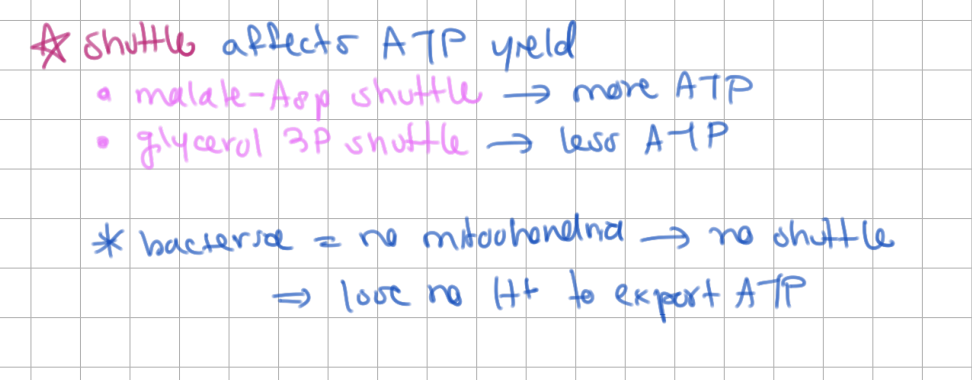 ☆ shuttle affects ATP yield
• malate-Asp shuttle → more ATP
• glycerol 3P shuttle → less ATP
* bacteria = no mitochondria → no shuttle
⇒ lose no H+ to export ATP